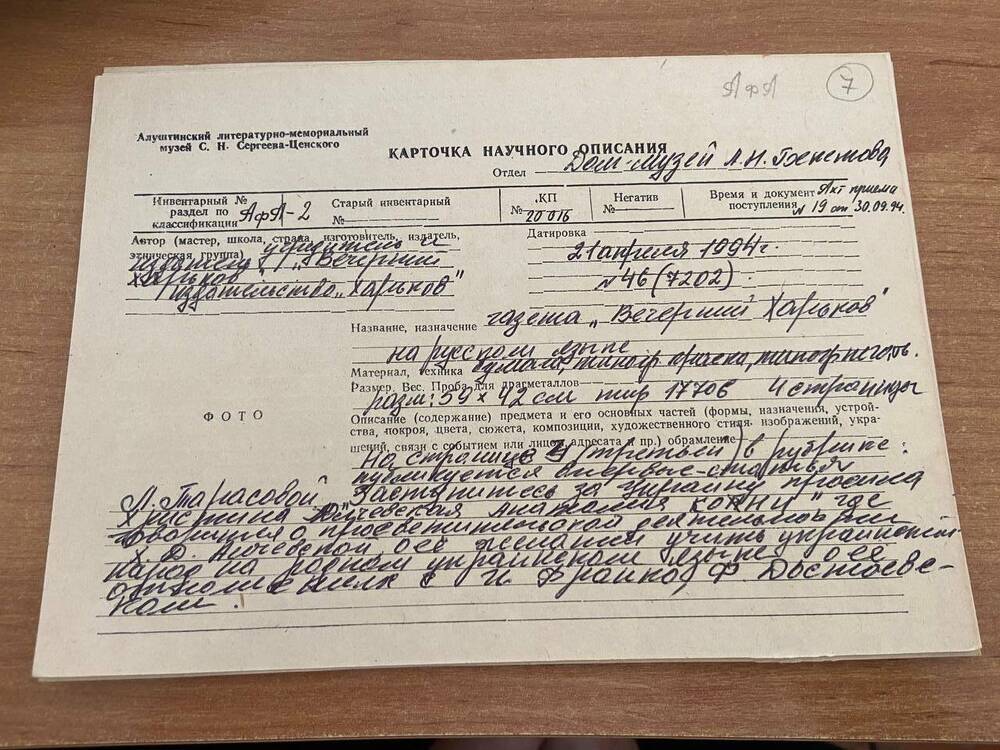 АфА
7
Алуштинский литературно-мемориальный
музей С. Н. Сергеева-Ценского
КАРТОЧКА НАУЧНОГО ОПИСАНИЯ
Отдел Дом-музей А.Н. Бекетова
Инвентарный №
раздел по
классификации АфА-2
Старый инвентарный
№
КП
№ 20016
Негатив
№
Время и документ Акт приема
поступления N 19 от 30.09.94.
Автор (мастер, школа, страна, изготовитель, издатель,
этническая группа) учредитель и
издатель „Вечерний
Харьков"
издательство „Харьков"
Датировка
21 апреля 1994 г.
N 46 (7202)
Название, назначение газета „Вечерний Харьков"
на русском языке
Материал, техника бумага, типогр. краска, типогр. печать.
Размер. Вес. Проба для драгметаллов
разм: 59 × 42 см тир 17706 4 страницы
ФОТО
Описание (содержание) предмета и его основных частей (формы, назначения, устрой-
ства, покроя, цвета, сюжета, композиции, художественного стиля, изображений, укра-
шений, связи с событием или лицом, адресата и пр.) обрамление
На странице 3 (третьей) в рубрике:
публикуется впервые - статья
Л. Тарасовой „Заступитесь за Украину просила
Христина Алчевская Анатолия Кони", где
говорится о просветительской деятельности
Х. Д. Алчевской, её желании учить украинский
народ на родном украинском языке, о её
И. Франко, Ф. Достоевс-
ком.